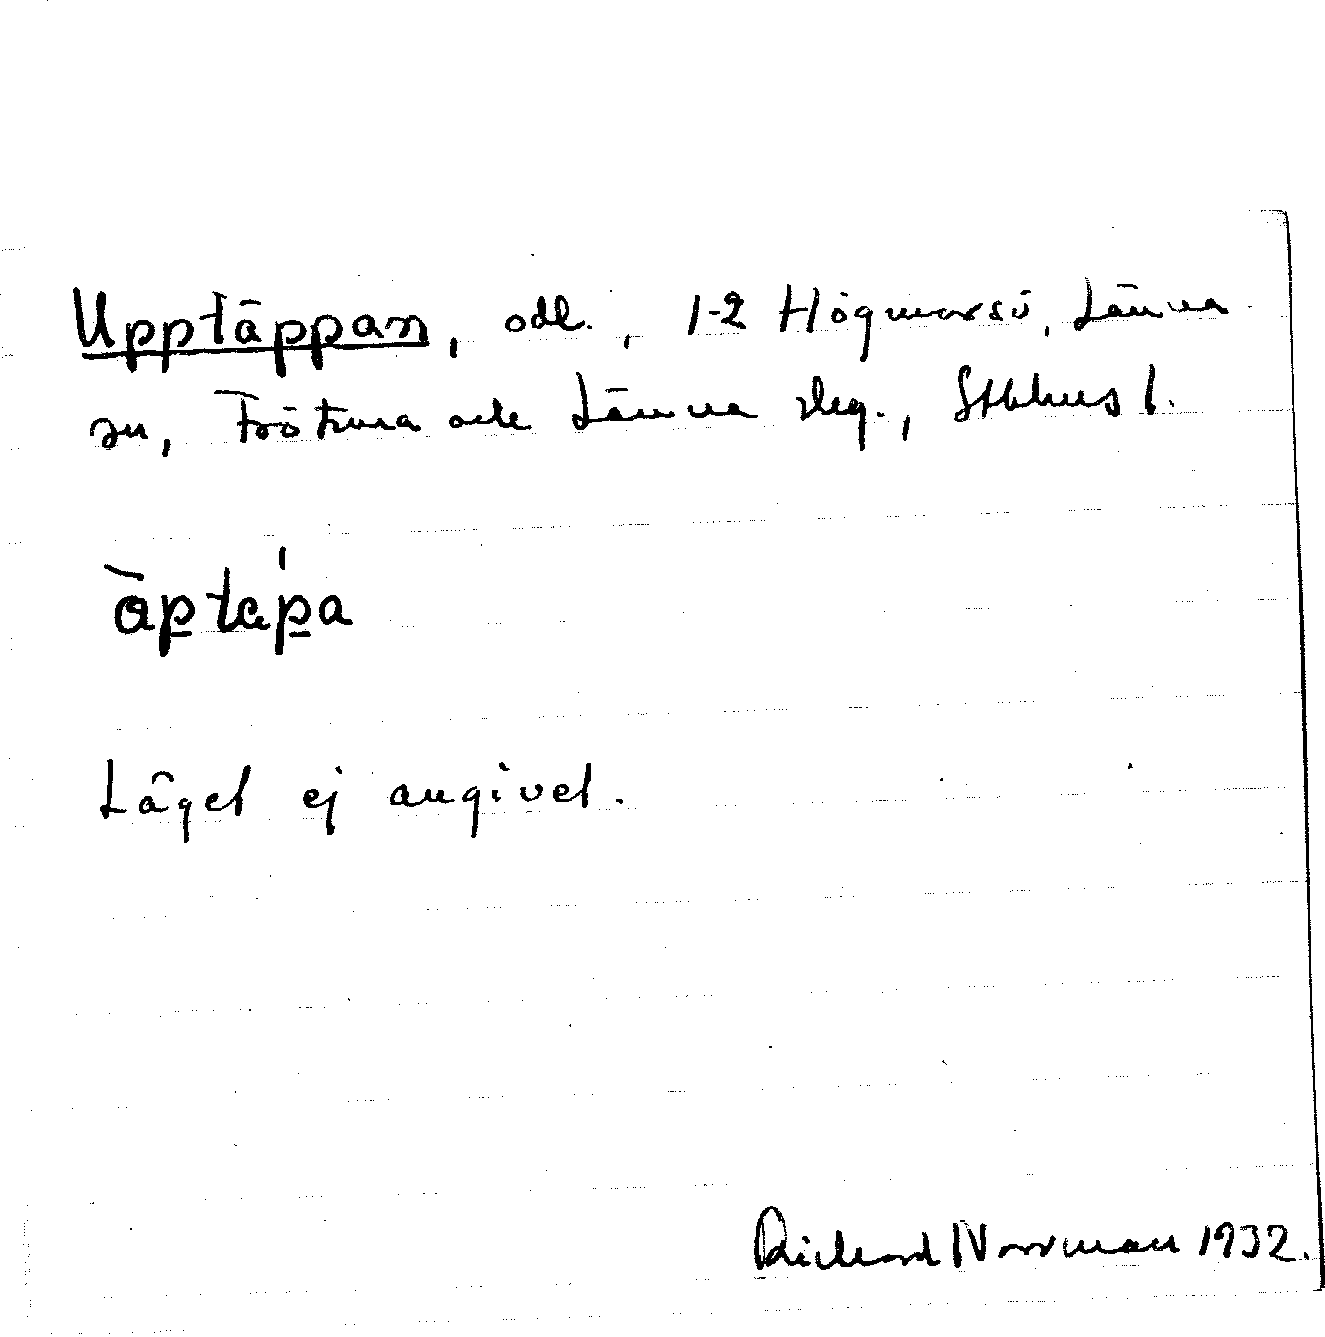 Upptäppan, odl., 1-2 Högmarsö, Länna
sn, Frötuna och Länna skg., Sthlms l.
àpta̍pa
Läget ej angivet.
Richard Norrman 1932.